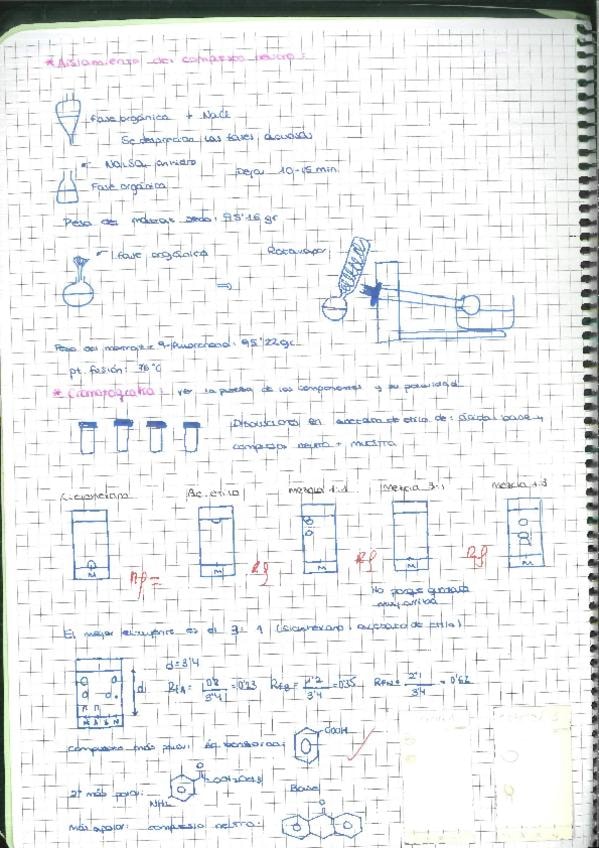 * Aislamiento del compuesto neutro:
Fase orgánica + NaCl
Se desprecian las fases acuosas
Na2SO4 anhidro
Dejar 10-15 min.
Fase orgánica
Peso del matraz seco: 95'16 gr
fase orgánica
Rotavapor
Peso del matraz + 9-fluorenona: 95'22 gr
pt. fusión: 76°C
* Cromatografía: ver la pureza de los componentes y su polaridad
Disoluciones en acetato de etilo de: ácido, base y
compuesto neutro + muestra
Ciclohexano
Ac. etilo
Mezcla 1:1
Mezcla 3:1
Mezcla 1:3
M M M M M
Rf = Rf Rf Rf
No porque quedaba
muy arriba
El mejor eluyente es el 3:1 (ciclohexano: acetato de etilo)
d = 3'4
d
RfA = 0'8/3'4 = 0'23 RfB = 1'2/3'4 = 0'35 RfN = 2'1/3'4 = 0'62
M A B N
compuesto más polar: Ác. benzoico:
COOH
2º más polar:
NH2
Base
más apolar: compuesto neutro:
O